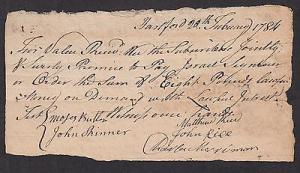 Hartford 24th February 1784
For Value Recd We the Subscribers Jointly
& Promise to Pay Seymour
or Order the Sum of Eight Pounds Lawfull
Money on Demand with Lawfull Interest
Test Moses Butler Witness our hands
John Skinner Matthew
John Rice
Merriman